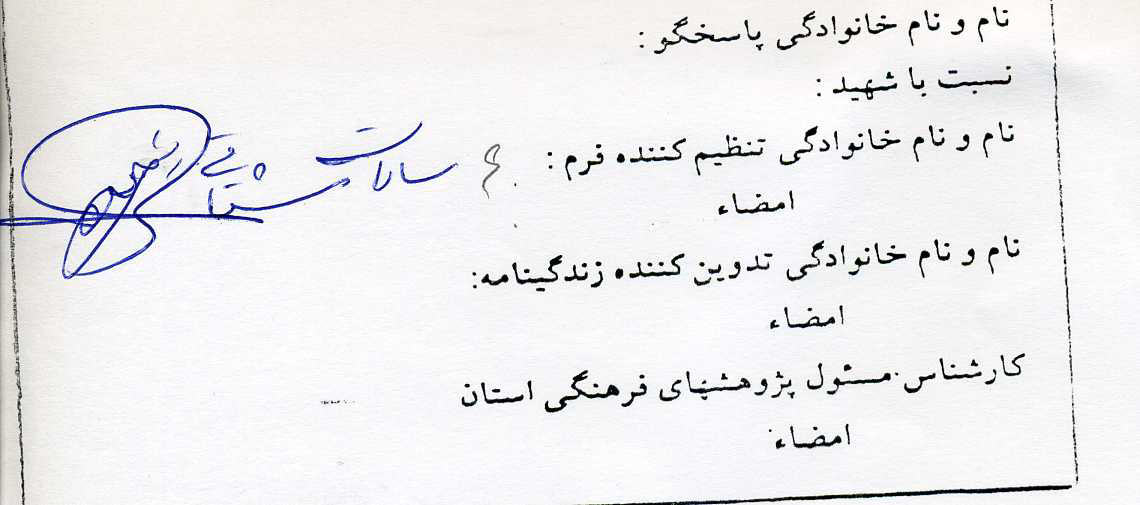 نام و نام خانوادگی پاسخگو :
نسبت با شهید :
نام و نام خانوادگی تنظیم کننده فرم : سادات
امضاء
نام و نام خانوادگی تدوین کننده زندگینامه:
امضاء
کارشناس مسئول پژوهشهای فرهنگی استان
امضاء